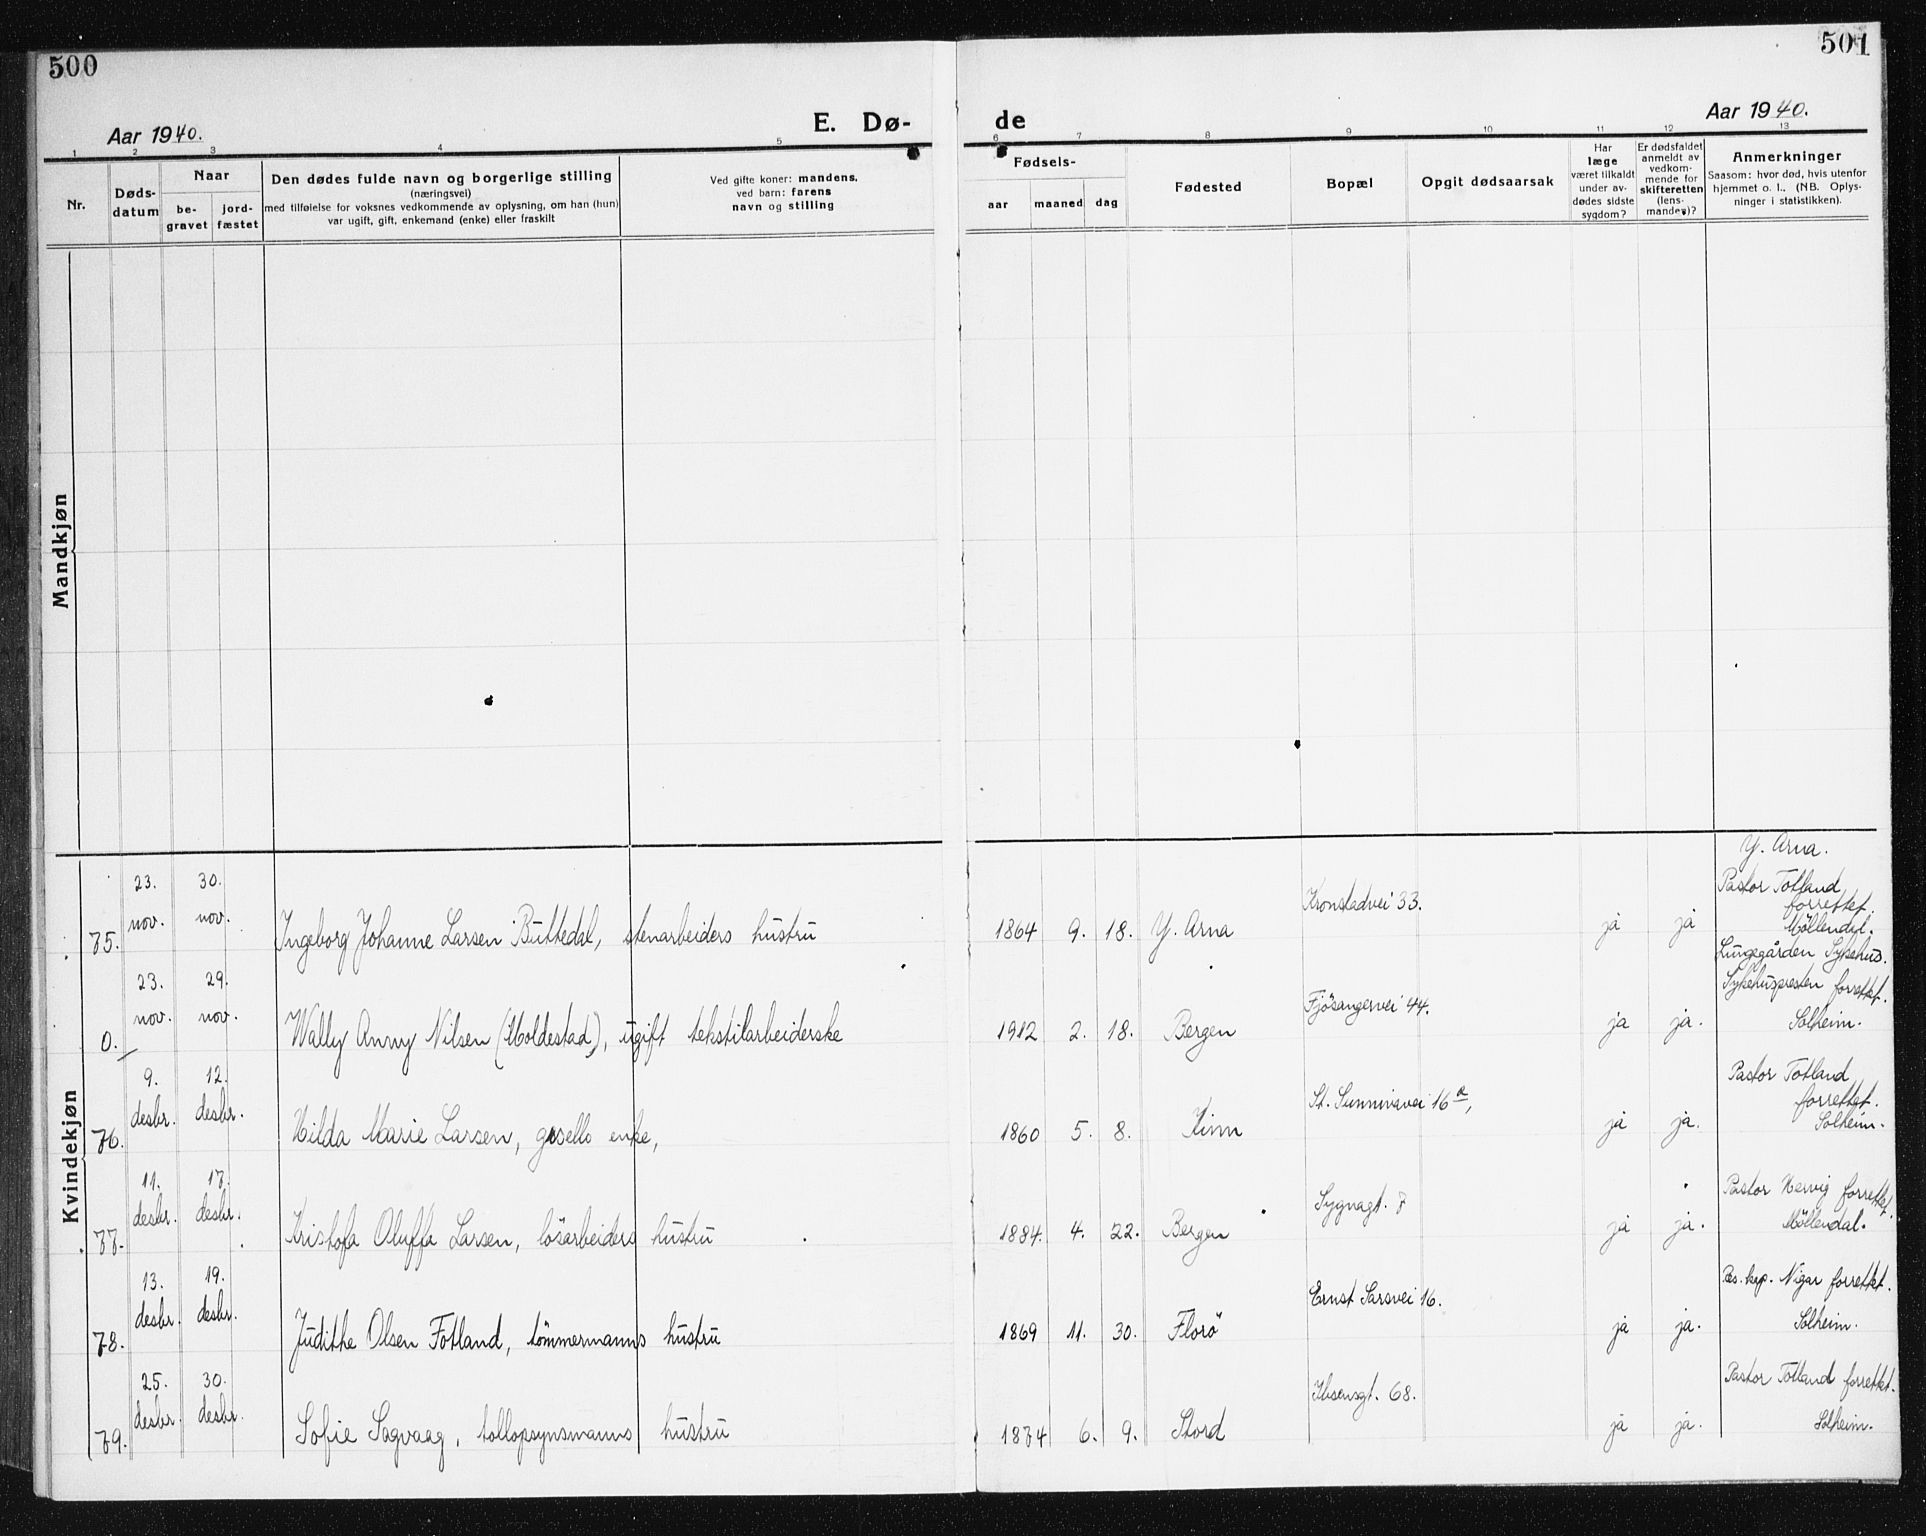 500
501
Aar 1940.
E. Dø-
de
Aar 1940.
1 2 3 4 5 6 7 8 9 10 11 12 13
Nr.
Døds-
datum
Naar
be-
gravet
jord-
fæstet
Den dødes fulde navn og borgerlige stilling
(næringsvei)
med tilføielse for voksnes vedkommende av oplysning, om han (hun)
var ugift, gift, enkemand (enke) eller fraskilt
Ved gifte koner: mandens,
ved barn: farens
navn og stilling
Fødsels-
aar maaned dag
Fødested
Bopæl
Opgit dødsaarsak
Har
læge
været tilkaldt
under av-
dødes sidste
sygdom?
Er dødsfaldet
anmeldt av
vedkom-
mende for
skifteretten
(lens-
mander)?
Anmerkninger
Saasom: hvor død, hvis utenfor
hjemmet o. l.. (NB. Oplys-
ninger i statistikken).
Mandkjøn
Kvindekjøn
Y. Arna.
23. 30. Kronstadvei 33. Pastor Totland
forrettet.
nov. nov.
75. Ingeborg Johanne Larsen Buttedal, stenarbeiders hustru 1864 9. 18. Y. Arna ja ja Möllendal.
Lungegården Sykehus.
23. 29. Fjösangervei 44. Sykehuspresten forrettet.
nov. nov.
0. Wally Anny Nilsen (Moldestad), ugift tekstilarbeiderske 1912 2. 18. Bergen ja ja. Solheim.
9. 12. St. Sunnivavei 16 a, Pastor Totland
forrettet.
desbr. desbr.
76. Hilda Marie Larsen, gsells enke, 1860 5. 8. Kinn ja ja. Solheim.
11. 17. Sygnagt. 7 Pastor Hervig forrettet.
desbr. desbr.
77. Kristofa Oluffa Larsen, lösarbeiders hustru 1884. 4. 22. Bergen ja ja. Möllendal.
13. 19. Ernst Sarsvei 16. Res. kap. Nigar forrettet.
desbr. desbr.
78. Judithe Olsen Fotland, tömmermanns hustru 1869 11. 30. Florö ja ja. Solheim.
25. 30. Ibsensgt. 68. Pastor Totland forrettet.
desbr. desbr.
79. Sofie Sagvaag, tollopsynsmanns hustru 1874 6. 9. Stord ja ja. Solheim.